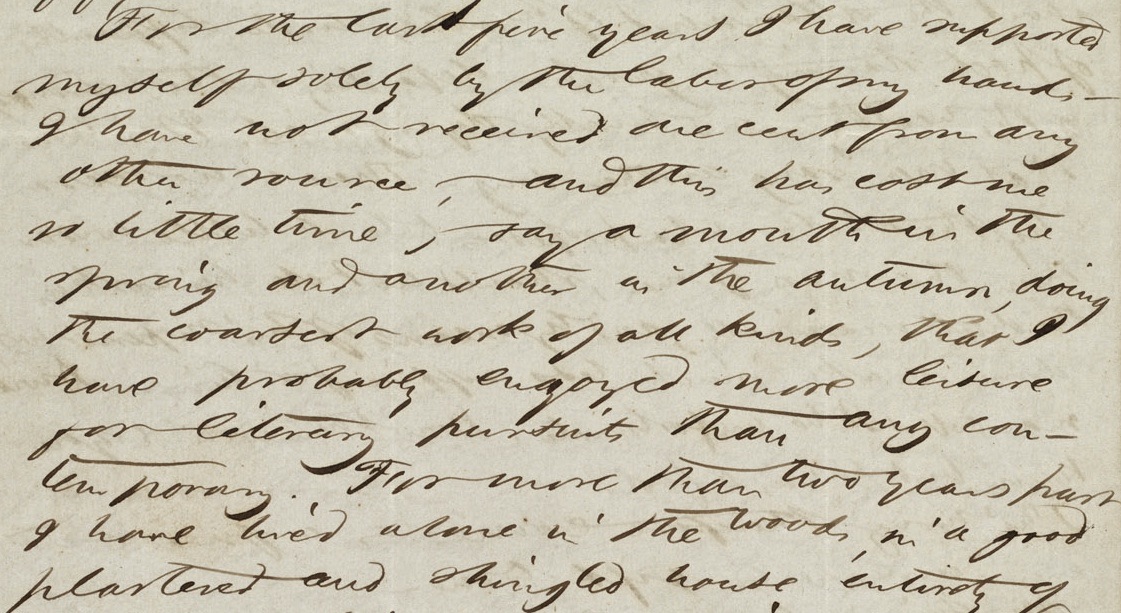 For the last five years I have supported
myself solely by the labor of my hands—
I have not received one cent from any
other source, — and this has cost me
so little time, — say a month in the
spring and another in the autumn, doing
the coarsest work of all kinds, that I
have probably enjoyed more leisure
for literary pursuits than any con-
temporary. For more than two years past
I have lived alone in the woods, in a good
plastered and shingled house entirely of